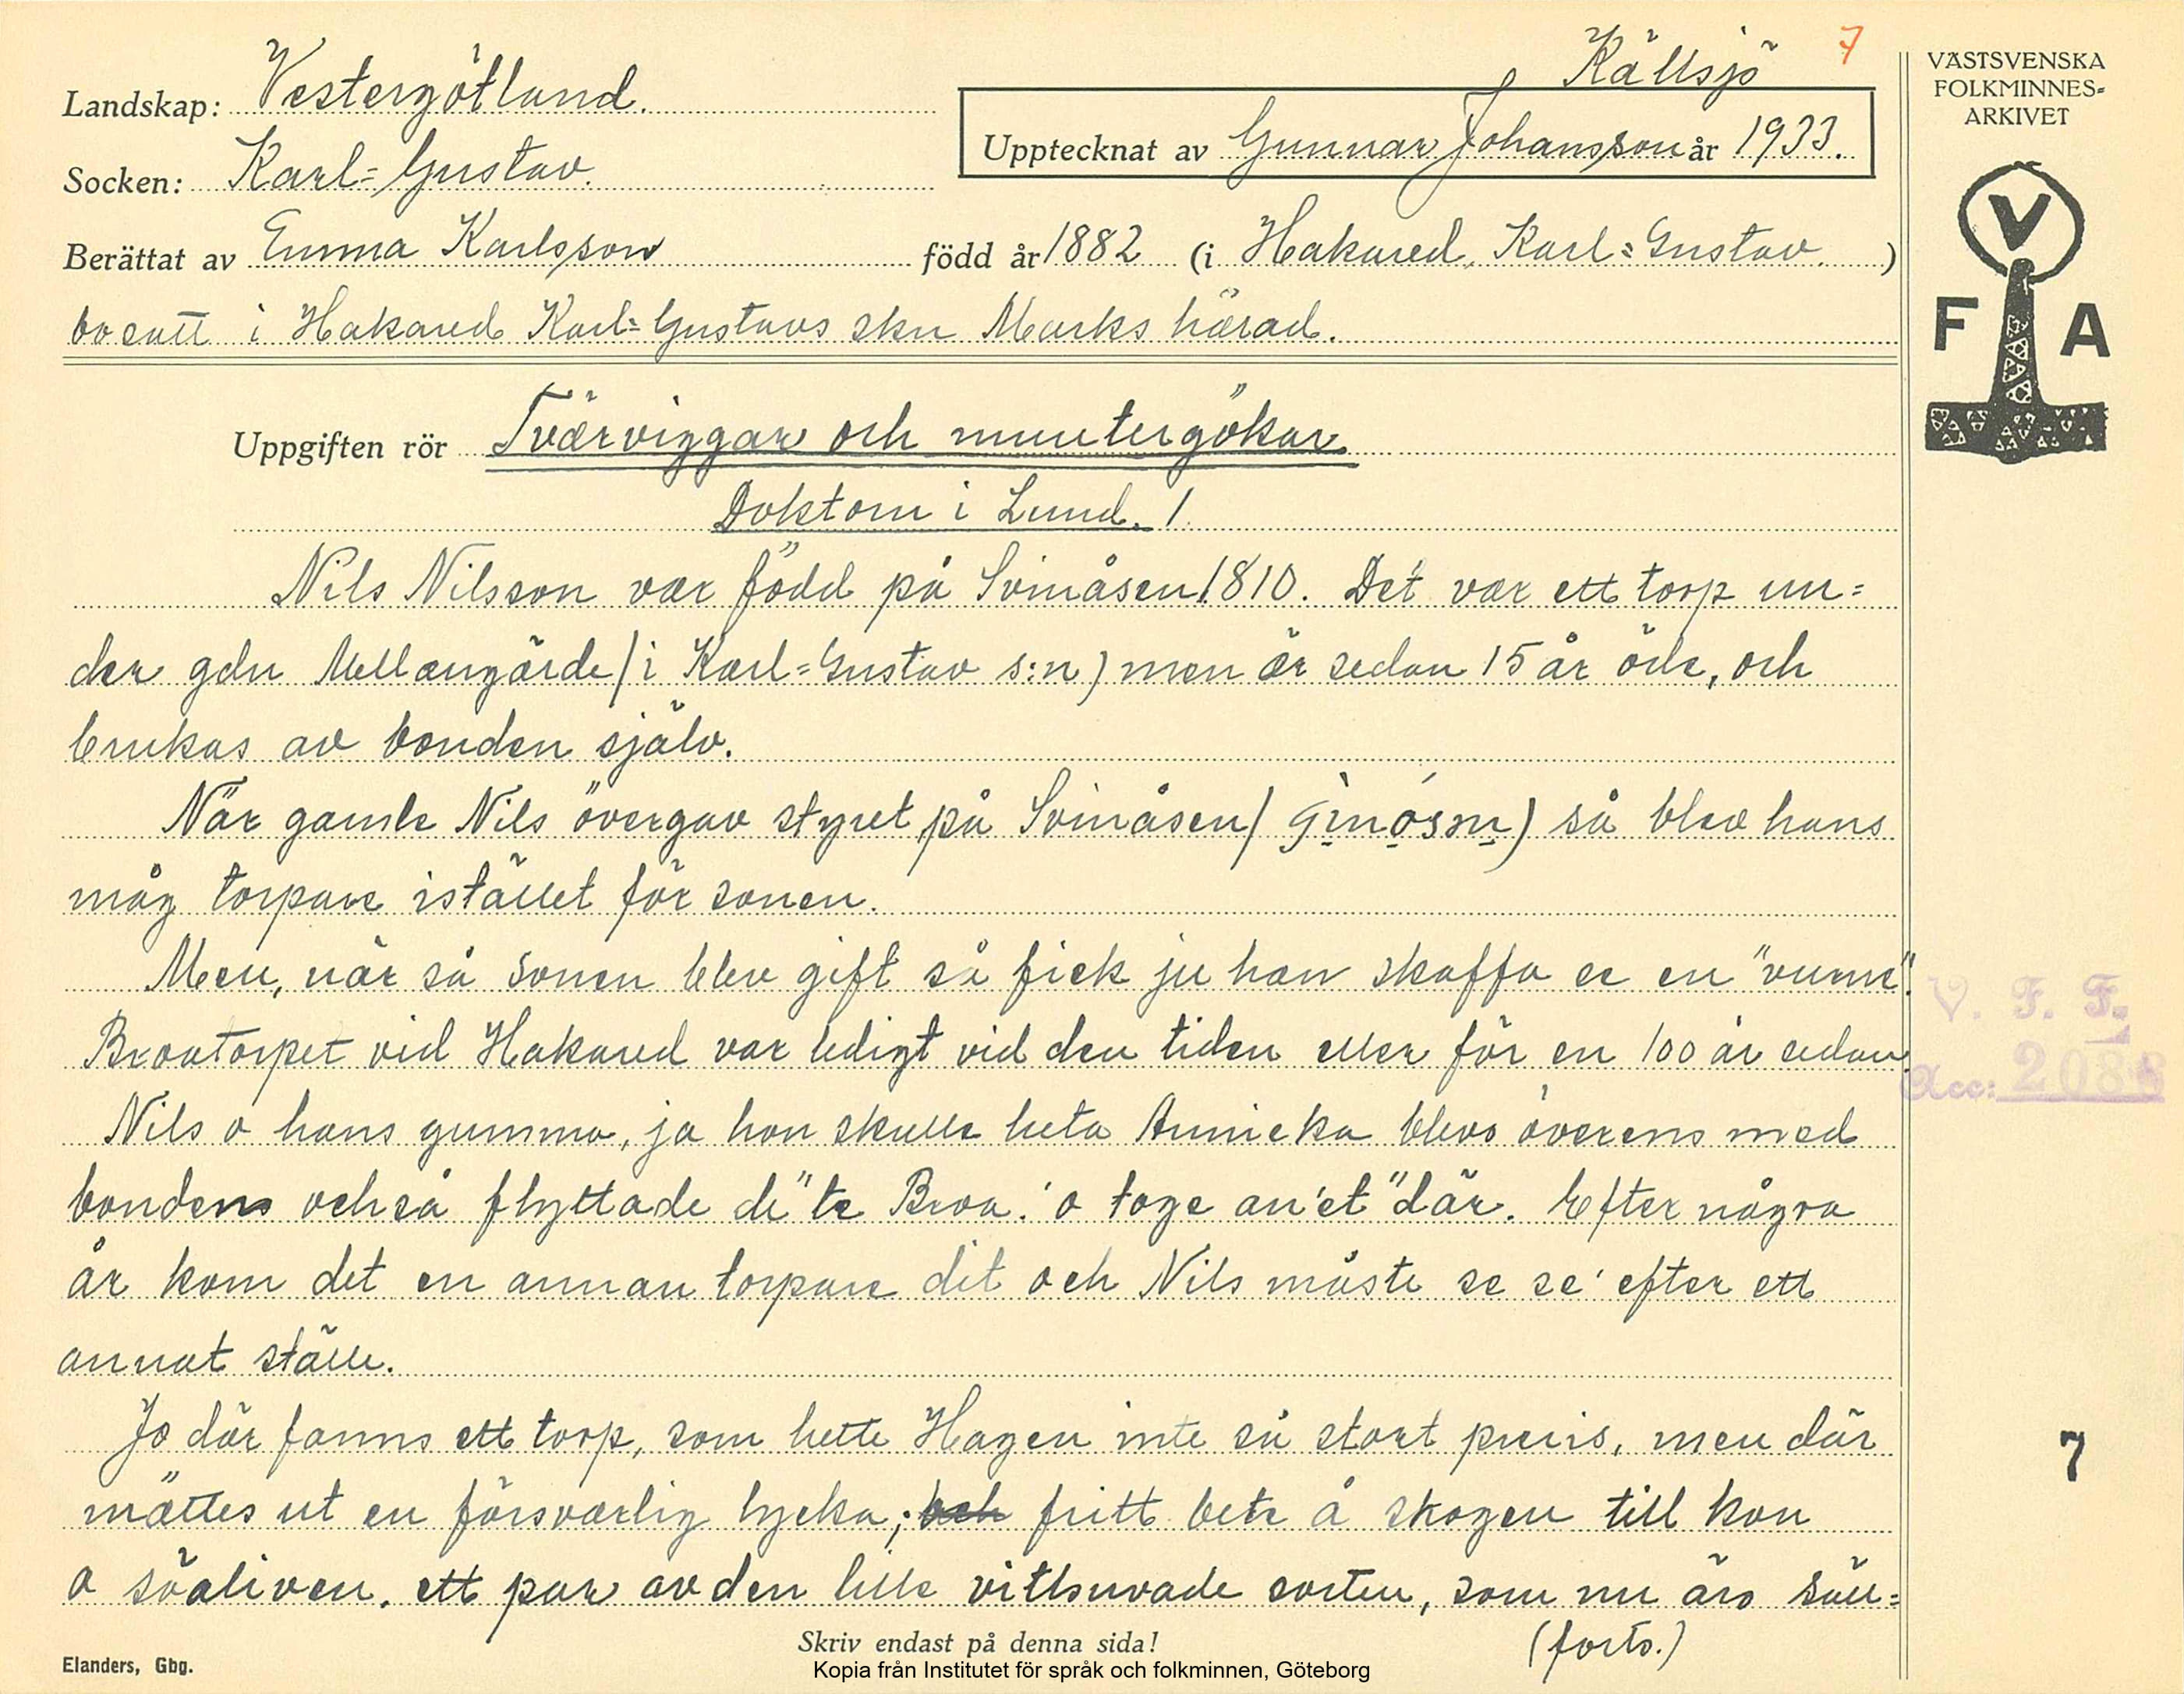 Källsjö 7
Landskap: Vestergötland.
Upptecknat av Gunnar Johansson år 1933.
Socken: Karl=Gustav.
Berättat av Emma Karlsson född år 1882 (i Hakared, Karl=Gustav.)
bosatt i Hakared Karl=Gustavs skn Marks härad.
VÄSTSVENSKA
FOLKMINNES-
ARKIVET
V
F A
Uppgiften rör Tvärviggar och muntergökar.
Doktorn i Lund. 1.
Nils Nilsson var född på Svinåsen 1810. Det var ett torp un=
der gdn Mellangärde (i Karl=Gustav s:n) men är sedan 15 år öde, och
brukas av bonden själv.
När gamle Nils övergav styret på Svinåsen ( ) så blev hans
måg torpare istället för sonen.
Men, när så sonen blev gift så fick ju han skaffa se en "vurne".
Broatorpet vid Hakared var ledigt vid den tiden eller för en 100 år sedan.
Nils o hans gumma, ja hon skulle heta Annicka blevo överens med
bondens och så flyttade di "te Broa." o toge an'et" där. Efter några
år kom det en annan torpare dit och Nils måste se se' efter ett
annat ställe.
Jo där fanns ett torp, som hette Hagen inte så stort precis, men där
mättes ut en försvarlig lycka; och fritt bete å skogen till kon
o söaliven. ett par av den lille vitluvade sorten, som nu äro säll=
(forts.)
V. F. F.
Acc: 2088
7
Skriv endast på denna sida!
Elanders, Gbg.
Kopia från Institutet för språk och folkminnen, Göteborg